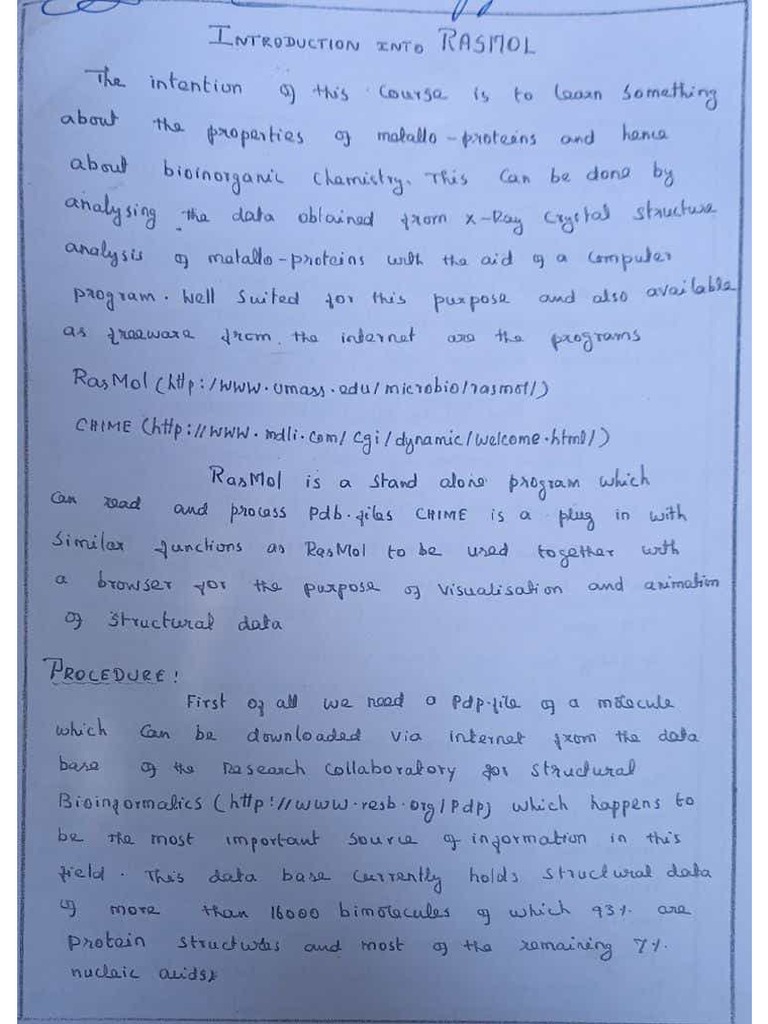 INTRODUCTION INTO RASMOL
The intention of this course is to learn something
about the properties of matallo-proteins and hence
about bioinorganic chemistry. This can be done by
analysing the data oblained from x-Ray Crystal structure
analysis of matallo-proteins with the aid of a computer
program. Well suited for this purpose and also available
as freeware from. the internet are the programs
RasMol (http:/www.umass.edu/microbio/rasmol/)
CHIME (http://www.mdli.com/cgi/dynamic/welcome.html/)
RasMol is a stand alone program which
can read and process Pdb.files CHIME is a plug in with
similar functions as RasMol to be used together with
a browser for the purpose of visualisation and animation
of structural data
PROCEDURE:
First of all we need a Pdp.file of a molecule
which can be downloaded via internet from the data
base of the Research Collaboratory for structural
Bioinformatics (http://www.resb.org/Pdp) which happens to
be the most important source of information in this
field. This data base currently holds structural data
of more than 16000 bimolecules of which 93% are
protein structures and most of the remaining 7%.
nucleic acids.